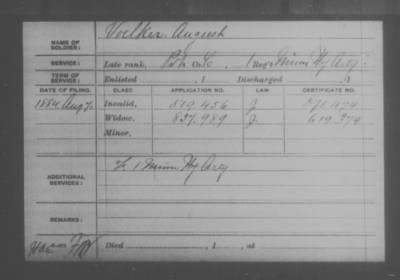 NAME OF SOLDIER: Voelker, August
SERVICE: Late rank, Co. C, 1 Reg't Minn Hy Arty
TERM OF SERVICE: Enlisted , 1 Discharged , 1
DATE OF FILING. CLASS. APPLICATION NO. LAW. CERTIFICATE NO.
1884 Aug 7 Invalid, 519.456 J. 571.474
Widow, 837.989 J. 619.379
Minor,
ADDITIONAL SERVICES: F. 1 Minn Hy Arty
REMARKS:
Died , 1 , at